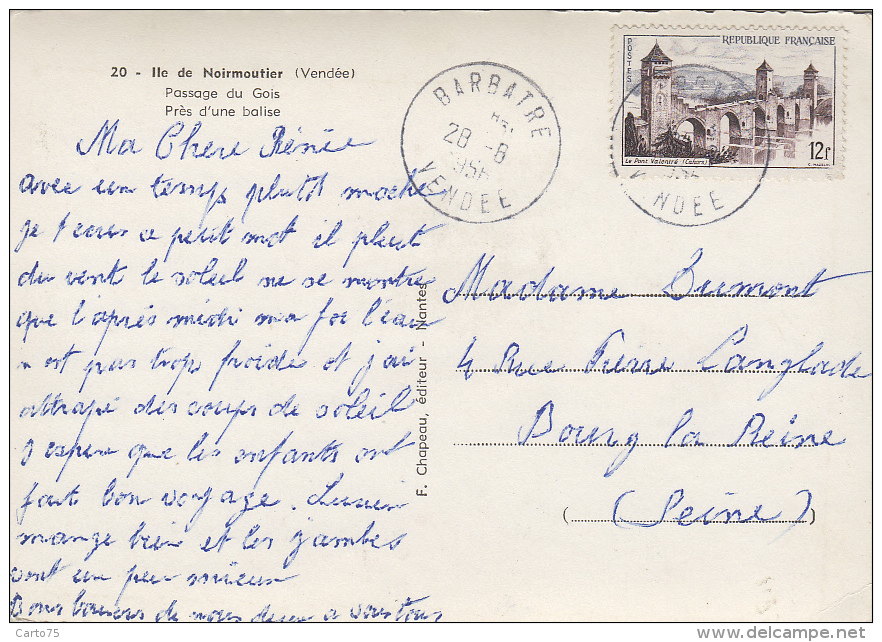 20 - Ile de Noirmoutier (Vendée)
Passage du Gois
Près d'une balise
Ma Chere Rénée
avec un temps plutôt moche
je t'ecris ce petit mot il pleut
du vent le soleil ne se montre
que l'après midi ma foi l'eau
n est pas trop froide et j'ai
attrapé des coups de soleil
J espere que les enfants ont
fait bon voyage. Lucien
mange bien et les jambes
vont un peu mieux
Bons baisers de nous deux a vous tous
F. Chapeau, éditeur - Nantes
BARBATRE
28 -8
VENDEE
REPUBLIQUE FRANÇAISE
POSTES
Le Pont Valentré (Cahors)
12f
NDEE
Madame Dumont
4 Rue Pierre Langlade
Bourg la Reine
(Seine)
Carto75
www.delcampe.net